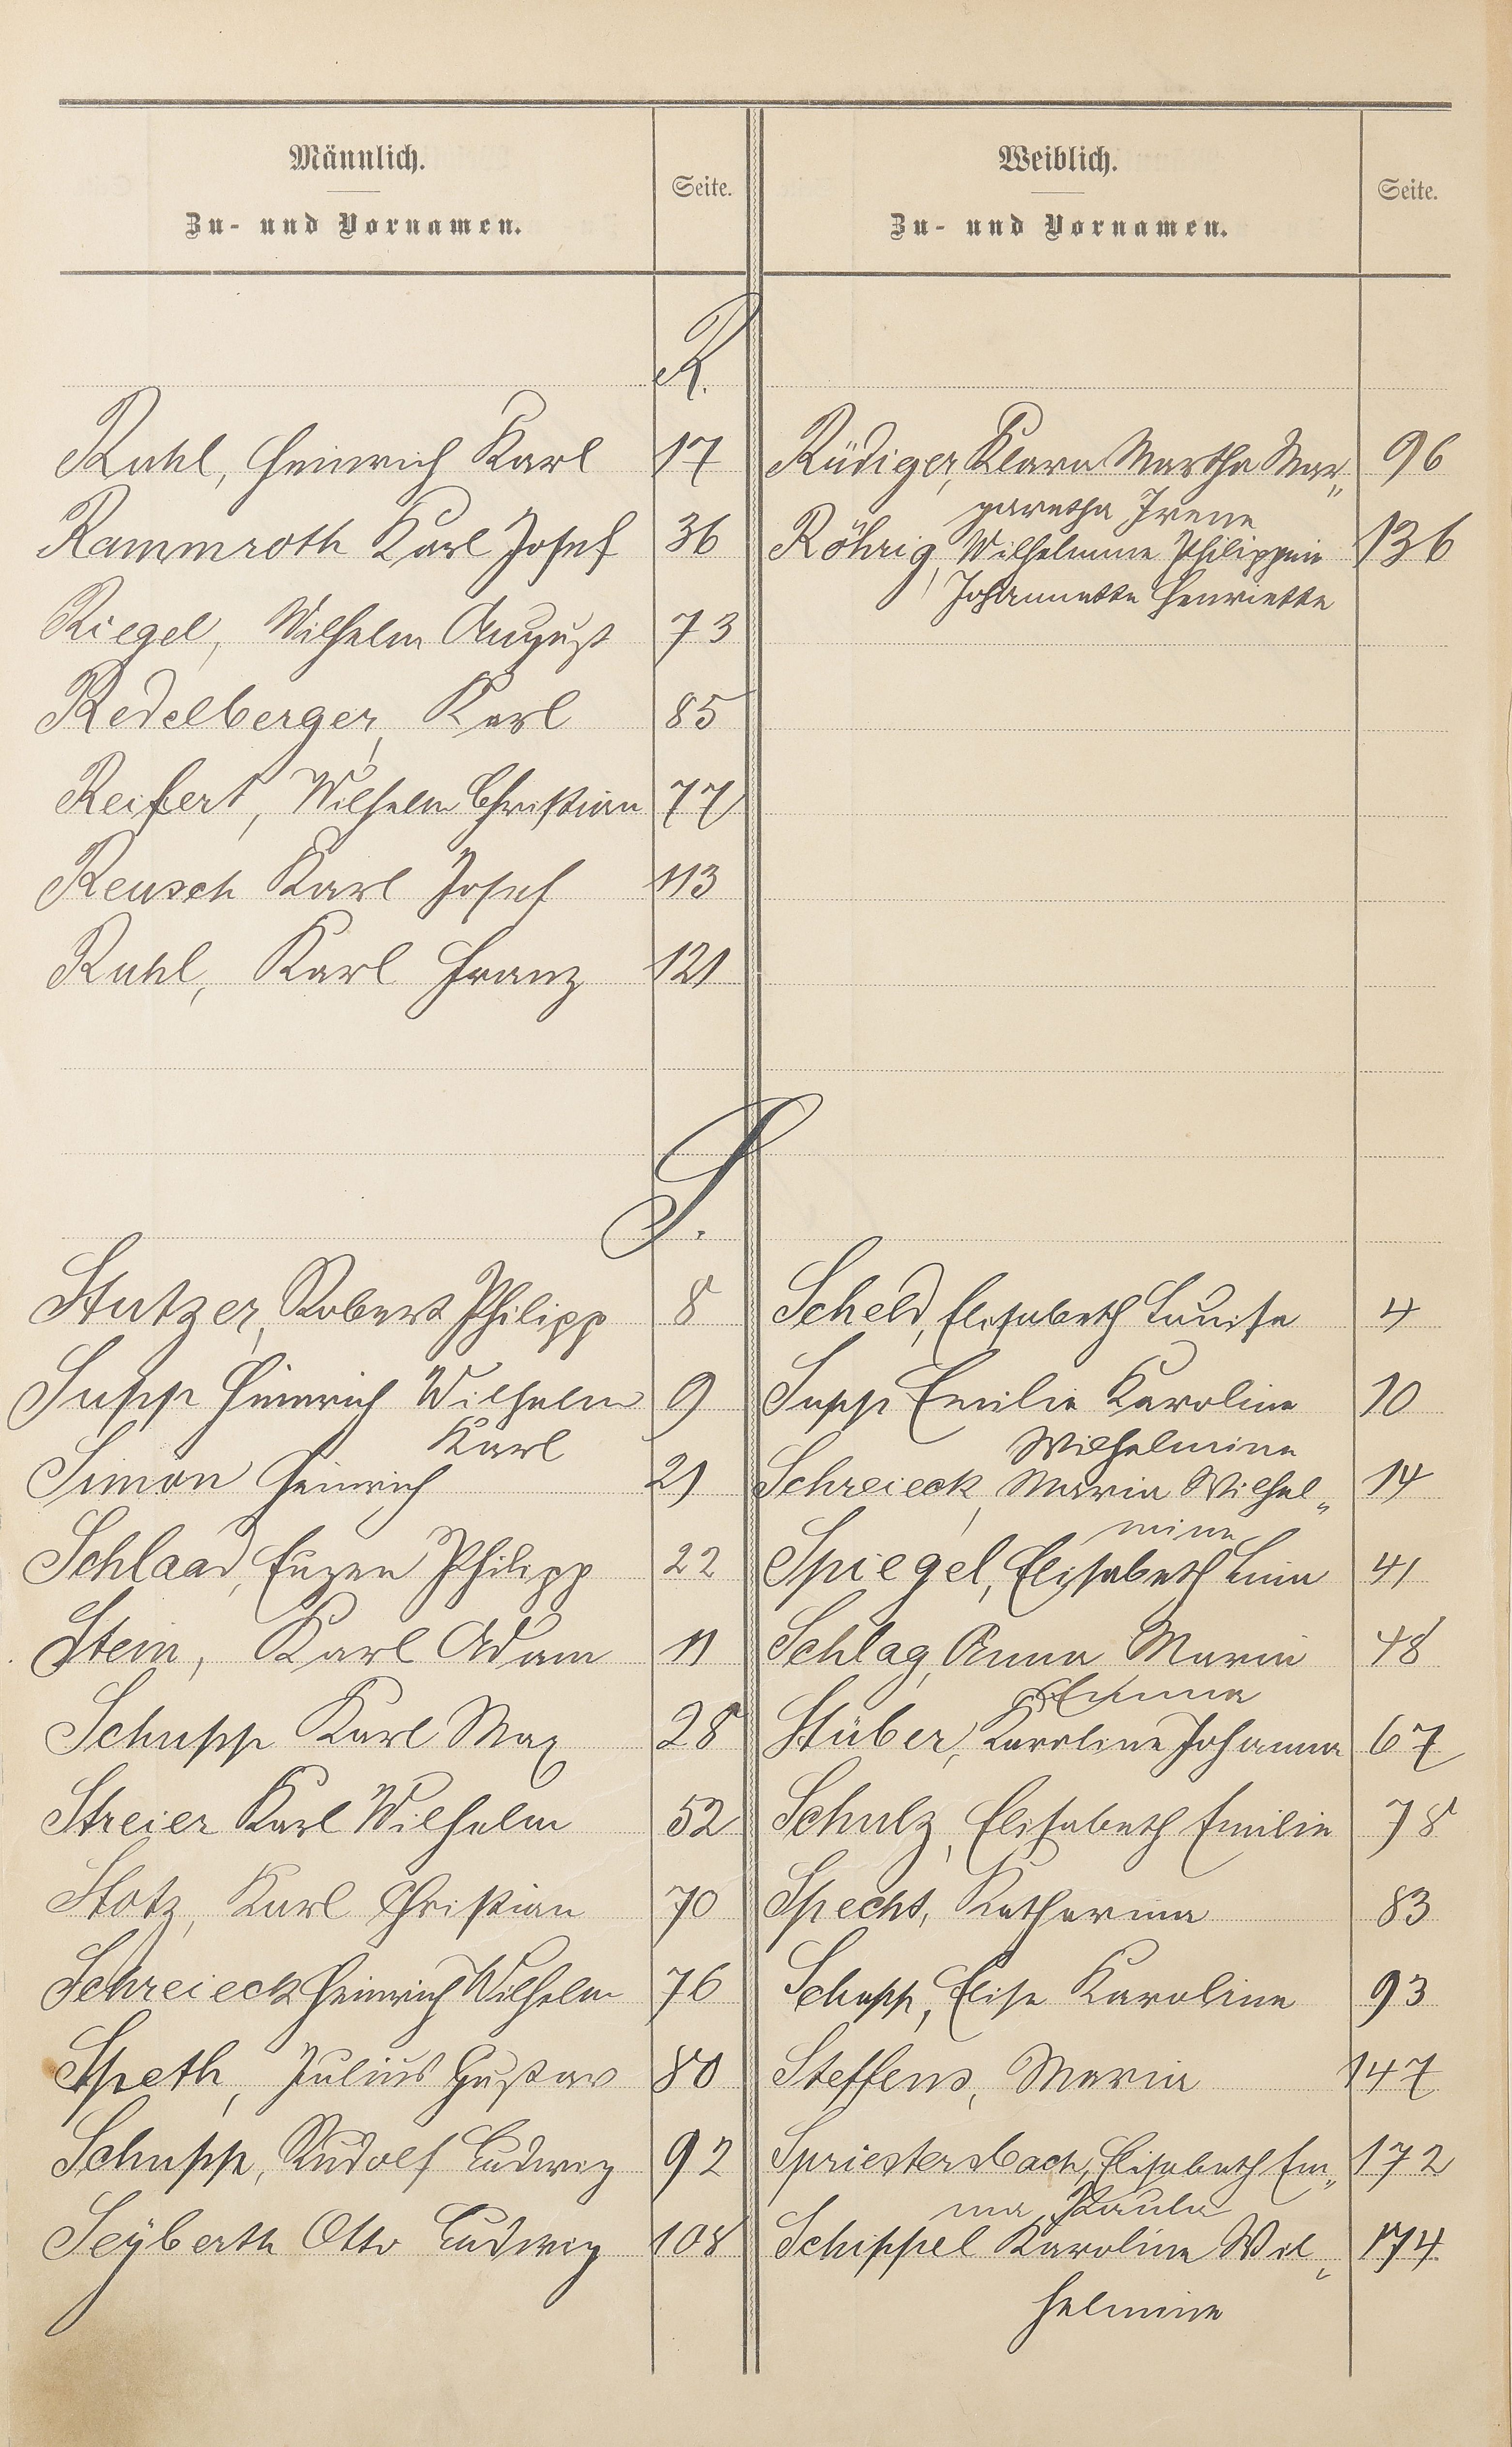 Männlich.
Zu- und Vornamen.
Seite.
Weiblich.
Zu- und Vornamen.
Seite.
R.
Ruhl, Heinrich Karl 17
Rammroth Karl Josef 36
Riegel, Wilhelm August 73
Redelberger, Karl 85
Reifert, Wilhelm Christian 77
Reusch Karl Josef 113
Ruhl, Karl Franz 121
Rüdiger, Klara Martha Mar„ 96
garetha Irene
Röhrig, Wilhelmine Philippine 136
Johannette Henriette
S.
Stutzer, Robert Philipp 8
Supp Heinrich Wilhelm 9
Karl
Simon Heinrich 21
Schlaad, Eugen Philipp 22
Stein, Karl Adam 11
Schupp Karl Max 28
Streier Karl Wilhelm 52
Stotz, Karl Christian 70
Schreieck Heinrich Wilhelm 76
Speth, Julius Gustav 80
Schupp, Rudolf Ludwig 92
Seÿberth Otto Ludwig 108
Scheld, Elisabeth Luise 4
Supp Emilie Karoline 10
Wilhelmine
Schreieck, Maria Wilhel„ 14
mine
Spiegel, Elisabeth Lina 41
Schlag, Anna Maria 48
Emma
Stüber, Karoline Johanna 67
Schulz, Elisabeth Emilie 78
Specht, Katharina 83
Schupp, Elise Karoline 93
Steffens, Maria 147
Spriestersbach, Elisabeth Em„ 172
ma Paula
Schippel Karoline Wil„ 174
helmine